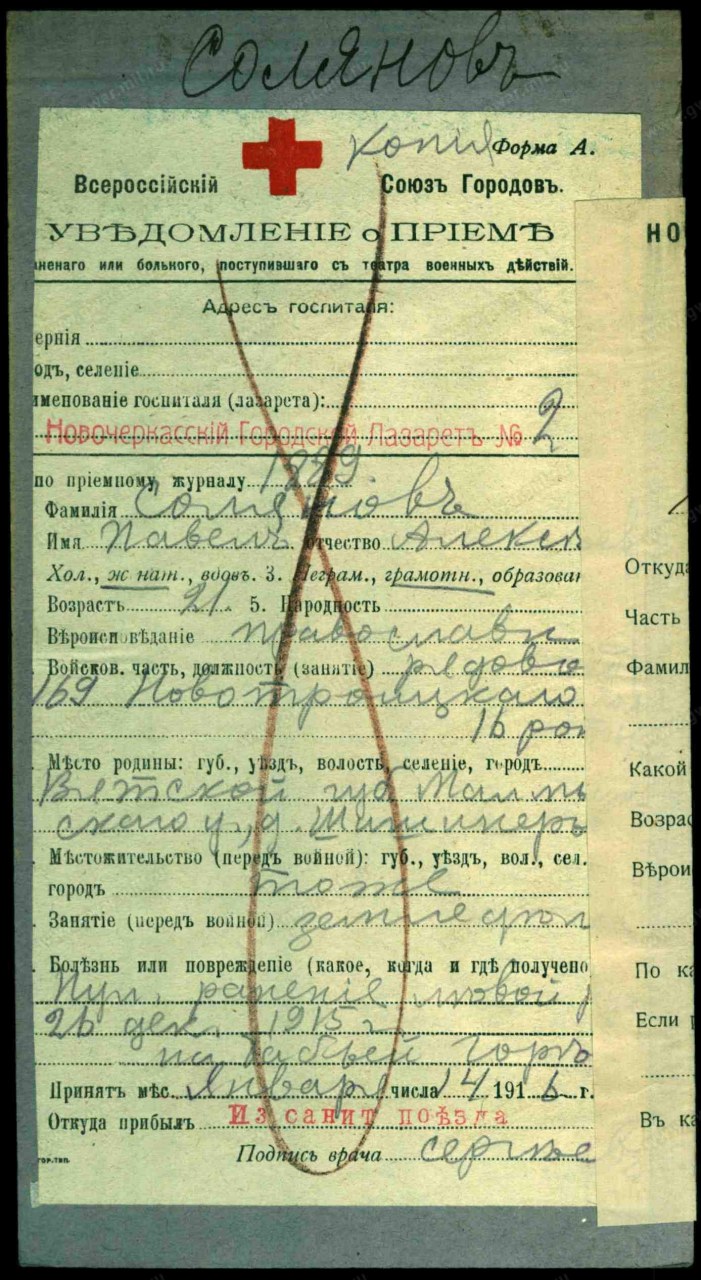 Соляновъ
копия Форма А.
Всероссійскій Союзъ Городовъ.
УВѢДОМЛЕНІЕ о ПРІЕМѢ
аненаго или больного, поступившаго съ театра военныхъ дѣйствій.
Адресъ госпиталя:
ернія
одъ, селеніе
именованіе госпиталя (лазарета):
Новочеркасскій Городской Лазаретъ № 2
по пріемному журналу 1859
Фамилія Соляновъ
Имя Павелъ отчество Алекс
Хол., ж нат., вдовъ. 3. Неграм., грамотн., образован
Возрастъ 21. 5. Народность
Вѣроисповѣданіе православн
Войсков. часть, должность (занятіе) рядово
169 Новотроицкаго
16 рот
Мѣсто родины: губ., уѣздъ, волость, селеніе, городъ
Вятской губ Малмы
скаго у., д.
Мѣстожительство (передъ войной): губ., уѣздъ, вол., сел.
городъ тоже
Занятіе (передъ войной) земледѣл
Болѣзнь или поврежденіе (какое, когда и гдѣ получено
Пул. раненіе лѣвой
26 дек. 1915 г.
на Бабьей горѣ
Принятъ мѣс. Января числа 14 1916 г.
Откуда прибылъ Из санит поѣзда
Подпись врача
ГОР.ТИП.
НО
Откуда
Часть
Фамил
Какой
Возрас
Вѣрои
По ка
Если
Въ ка